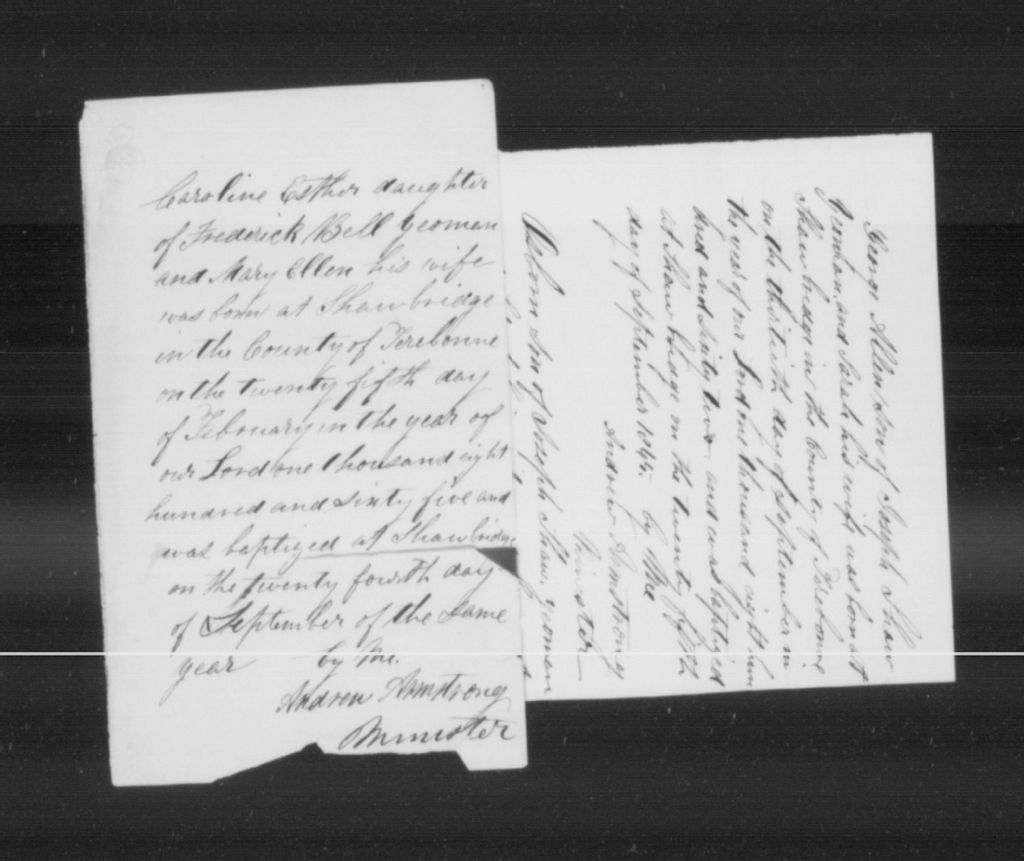 Caroline Esther daughter
of Frederick Bell yeoman
and Mary Ellen his wife
was born at Shawbridge
in the County of Terebonne
on the twenty fifth day
of February in the year of
our Lord one thousand eight
hundred and sixty five and
was baptized at Shawbridge
on the twenty fourth day
of September of the same
year by Me.
Andrew Armstrong
Minister
George Allen Son of Joseph Shaw
Yeoman, and Sarah his wife was born at
Shawbridge in the County of Terebonne
on the thirtieth day of September in
the year of our Lord one thousand eight hun
dred and sixty two and was baptized
at Shawbridge on the twenty fifth
day of September 1865. by Me
Andrew Armstrong
Minister
son of Joseph Shaw, yeoman